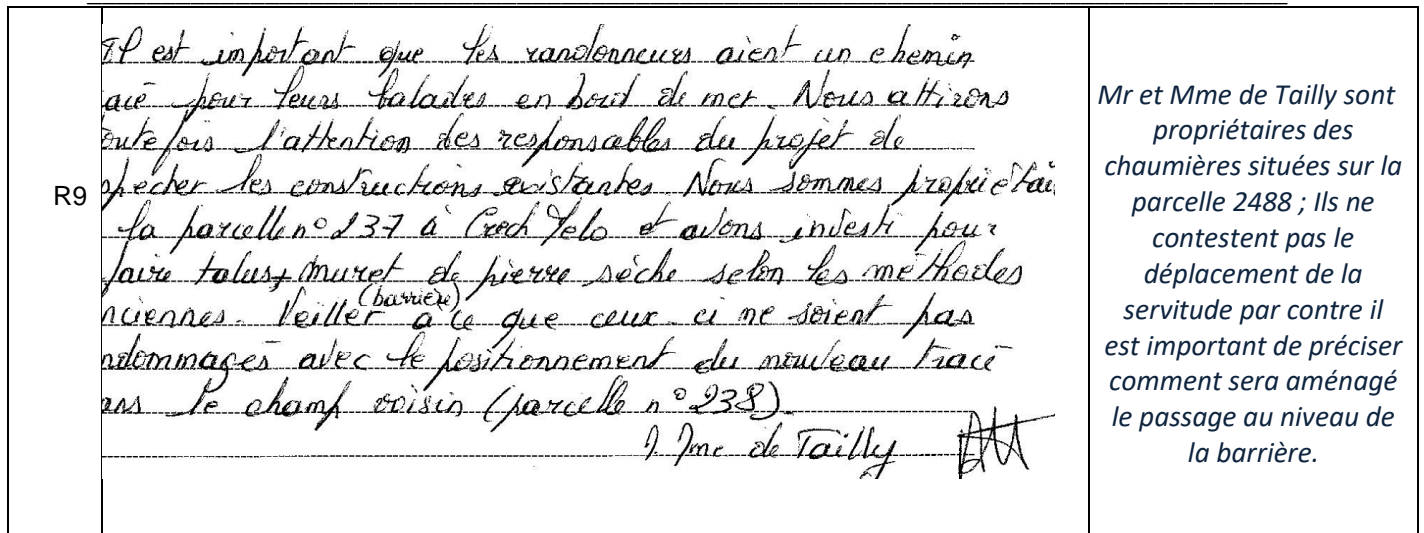 R9
Il est important que les randonneurs aient un chemin
acé pour leurs balades en bord de mer. Nous attirons
outefois l'attention des responsables du projet de
specter les constructions existantes. Nous sommes propriétai
la parcelle n° 237 à Crech Lelo et avons investi pour
faire talus + muret de pierre sèche selon les méthodes
nciennes. Veiller (barrière) à ce que ceux-ci ne soient pas
ndommagés avec le positionnement du nouveau tracé
ans le champ voisin (parcelle n° 238).
Mme de Tailly
Mr et Mme de Tailly sont
propriétaires des
chaumières situées sur la
parcelle 2488 ; Ils ne
contestent pas le
déplacement de la
servitude par contre il
est important de préciser
comment sera aménagé
le passage au niveau de
la barrière.